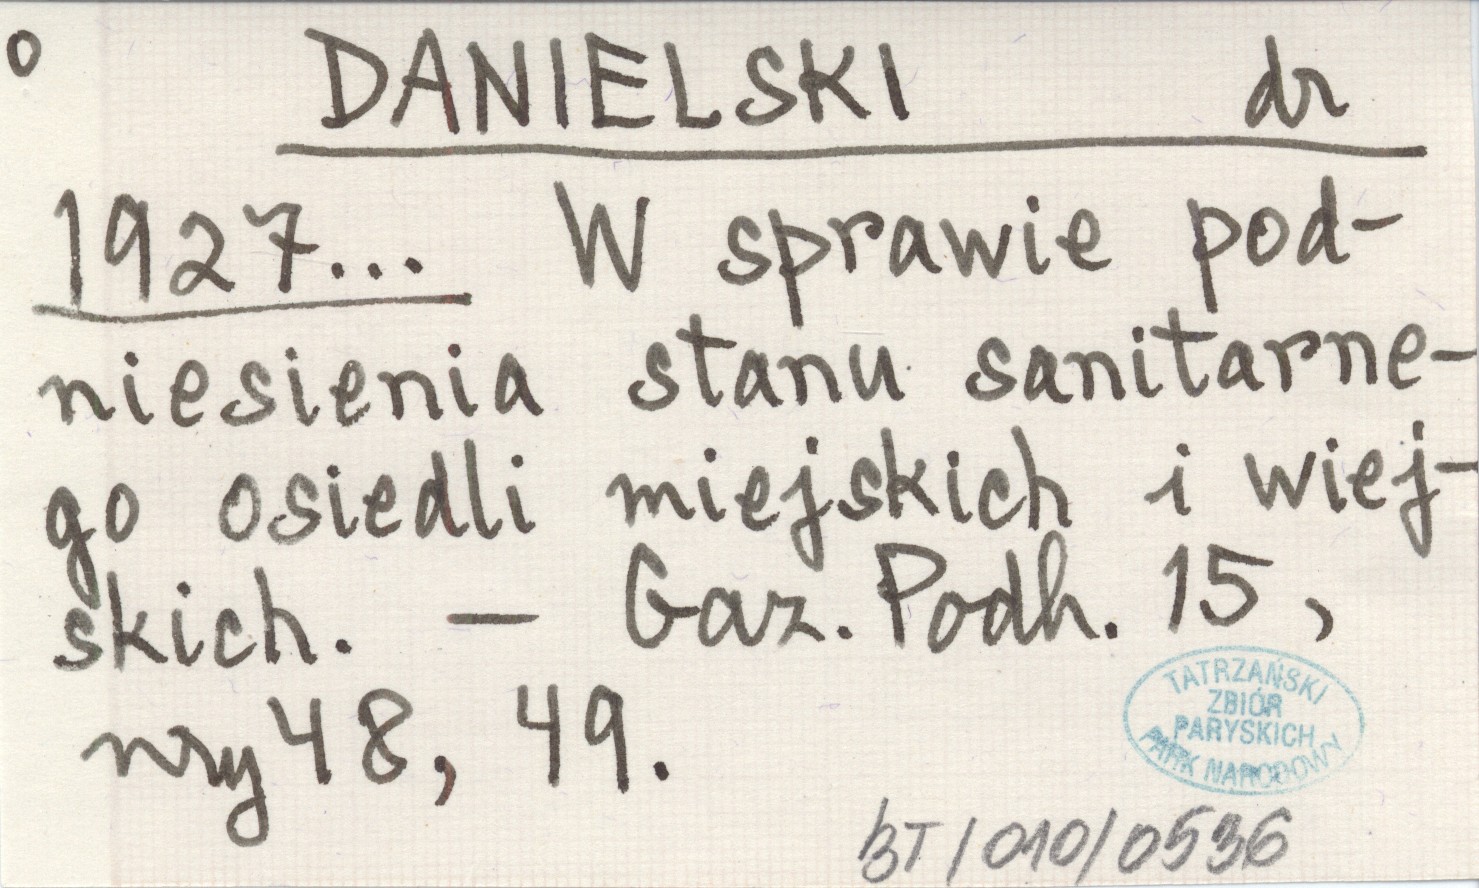 o DANIELSKI dr
1927... W sprawie pod-
niesienia stanu sanitarne-
go osiedli miejskich i wiej-
skich. — Gaz. Podh. 15,
nry 48, 49.
TATRZAŃSKI
ZBIÓR
PARYSKICH
PARK NARODOWY
BT/010/0536